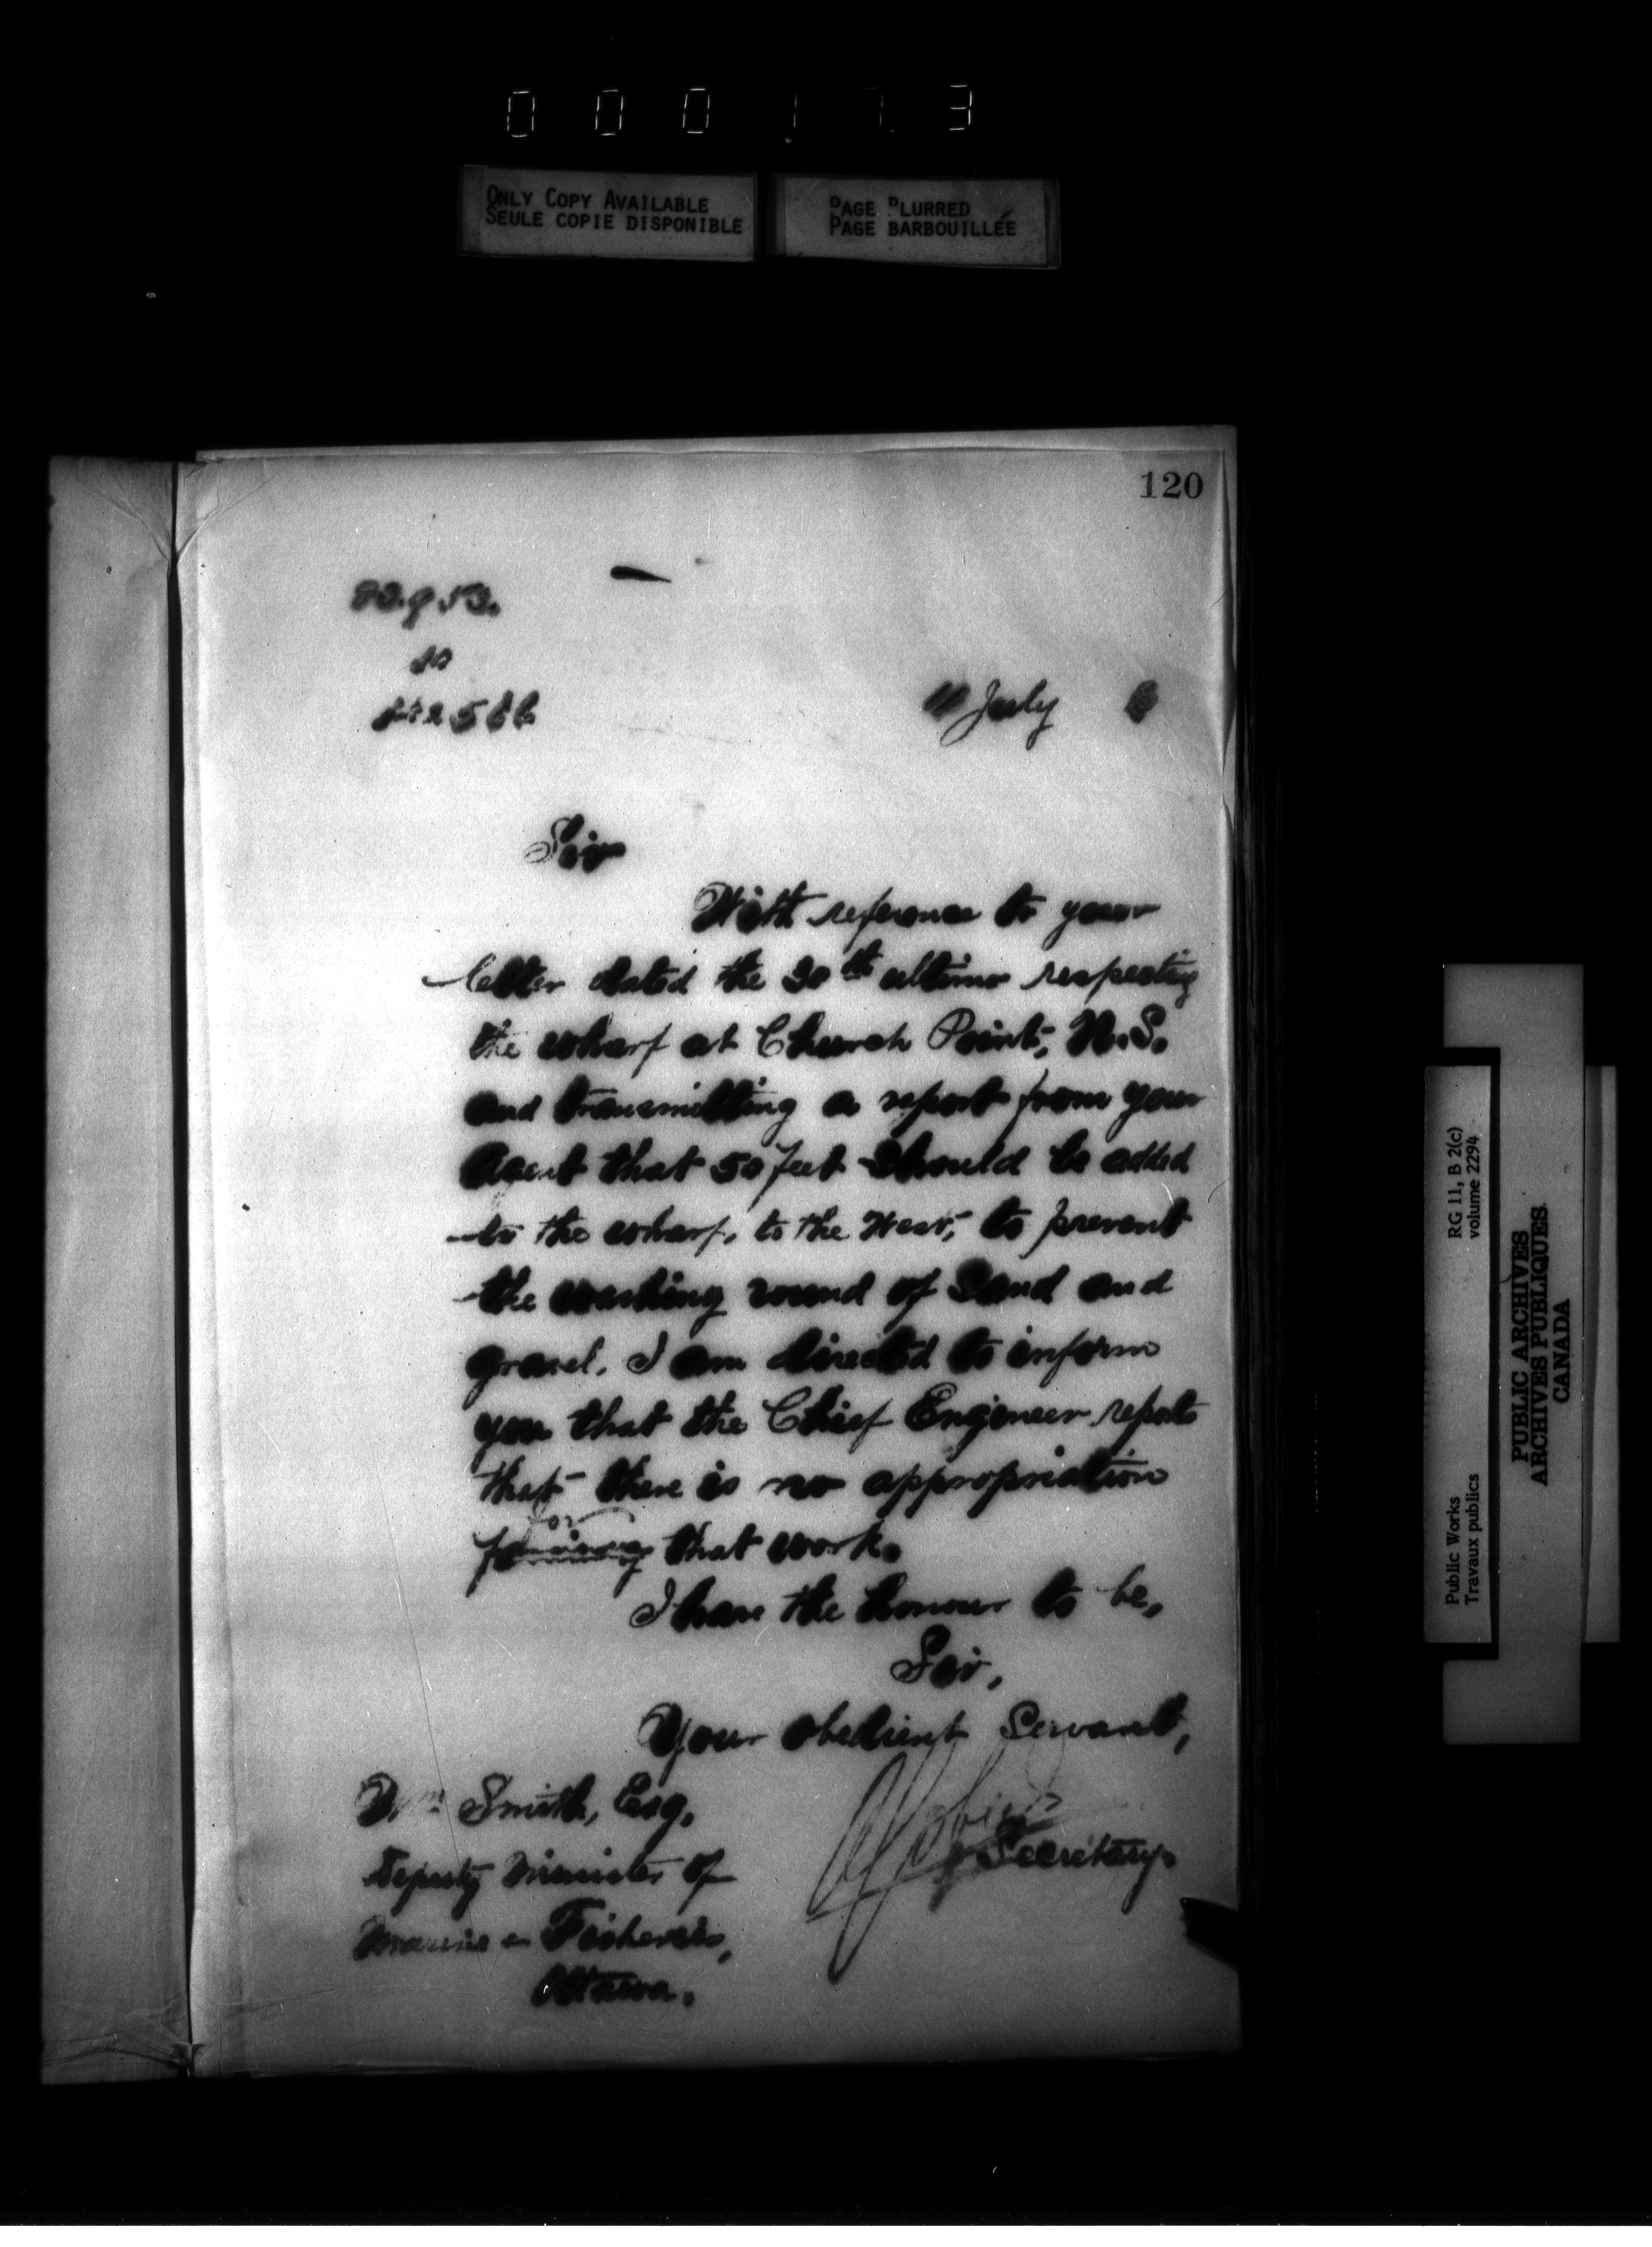 000173
ONLY COPY AVAILABLE
SEULE COPIE DISPONIBLE
PAGE BLURRED
PAGE BARBOUILLÉE
120
July
Sir
With reference to your
letter dated the 30th ultimo respecting
the wharf at Church Point, N.S.
and transmitting a report from your
Agent that 50 feet should be added
to the wharf, to the West, to prevent
the washing round of Sand and
gravel. I am directed to inform
you that the Chief Engineer reports
that there is no appropriation
for
that work.
I have the honour to be,
Sir,
Your obedient Servant,
Secretary.
Wm Smith, Esq.
Deputy Minister of
Marine & Fisheries,
Ottawa.
Public Works
Travaux publics
RG 11, B 2(c)
volume 2294
PUBLIC ARCHIVES
ARCHIVES PUBLIQUES
CANADA